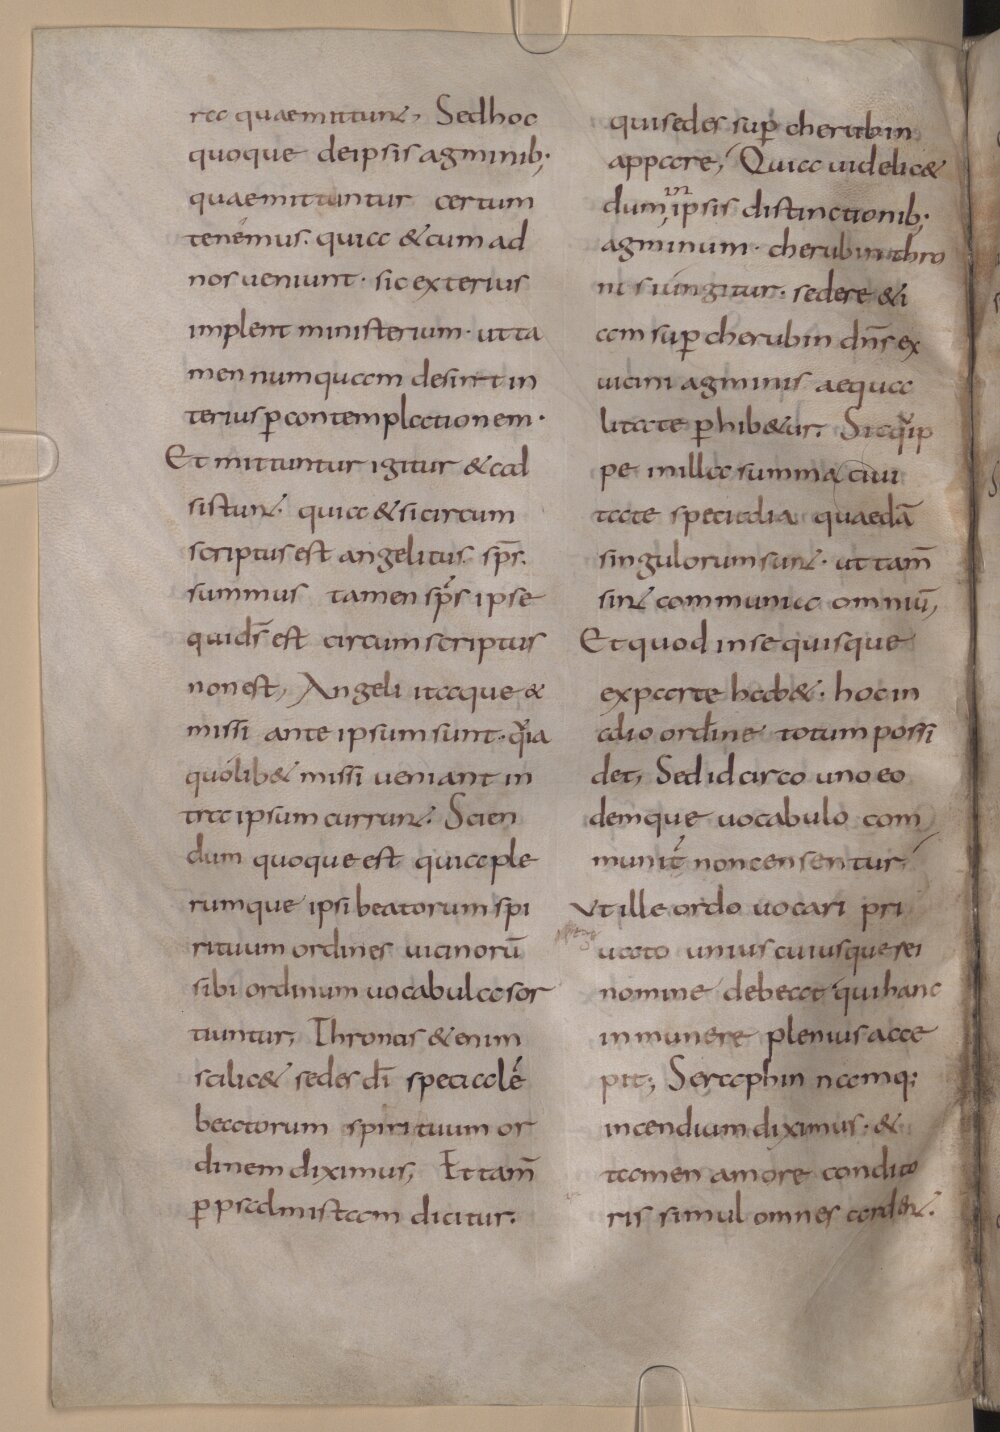 ra quaemittunt, Sed hoc
quoque deipsis agminib;
quaemittuntur certum
tenemus. quia &cum ad
nos ueniunt· sic exterius
implent ministerium· ut ta
men numquam desint in
terius p̄ contemplationem·
Et mittuntur igitur & ad
sistunt· quia & si circum
scriptus est angelicus sp̄s.
summus tamen sp̄s ipse
quid̄s est circumscriptus
non est, Angeli itaque &
missi ante ipsum sunt· quia
quólib& missi ueniant in
tra ipsum currunt. Scien
dum quoque est quia ple
rumque ipsi beatorum spi
rituum ordines uicinorū
sibi ordinum uocabula sor
tiuntur, Thronos &enim
scilic& sedes dī specialē
beatorum spirituum or
dinem diximus, Et tam̄
p̄ psalmistam dicitur.
qui sedes sup̄ cherubin
appare, Quia uidelic&
dum in ipsis distinctionib;
agminum· cherubin thro
ni siungitur. sedere &i
am sup̄ cherubin dn̄s ex
uicini agminis aequa
litate p̄hib&ur. Sic quip
pe in illa summa ciui
tate specialia quaedā
singulorum sunt· ut tam̄
sint communia omniū,
Et quod in se quisque
exparte hab&· hoc in
alio ordine totum possi
det, Sed idcirco uno eo
demque uocabulo com
munit̄ non censentur
Ut ille ordo uocari pri
uato unius cuiusque rei
nomine debeat qui hanc
in munere plenius acce
pit; Seraphin namq;
incendium diximus· &
tamen amore condito
ris simul omnes ardent.